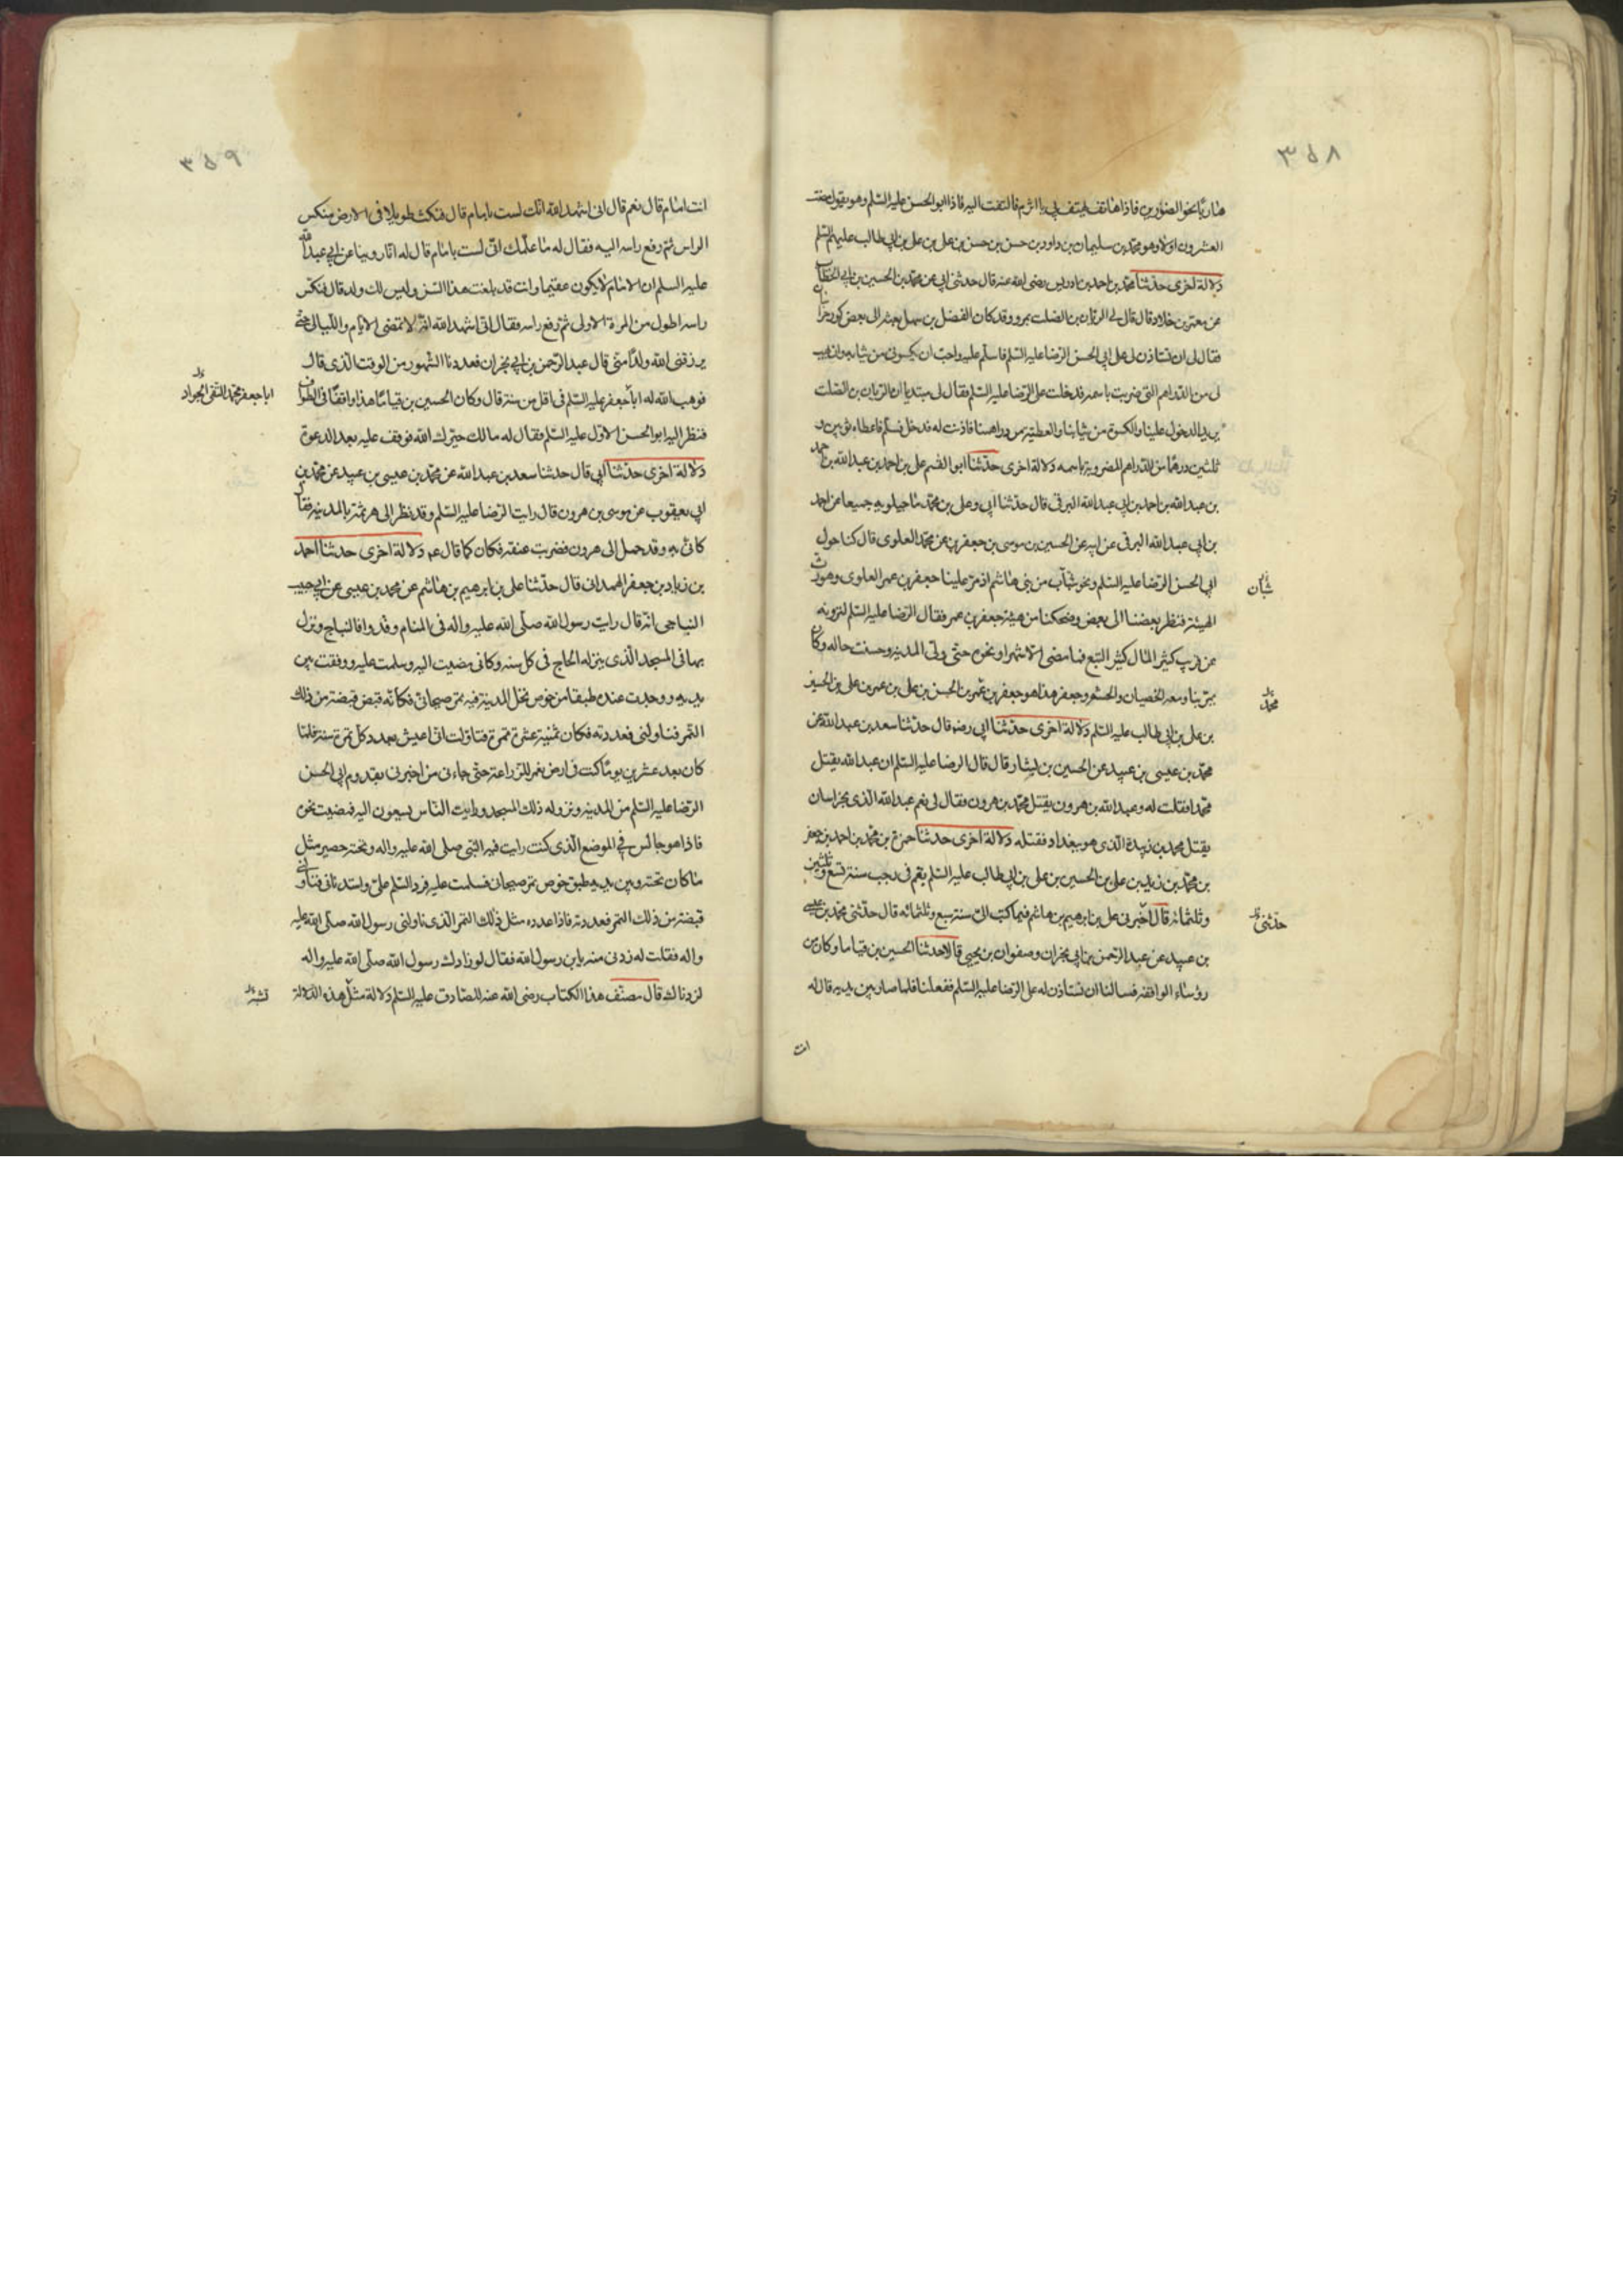 ٣٥٨
هاربا نحو الضوارين فاذا هاتف يهتف بى يا اثرم فالتفت اليه فاذا ابو الحسن عليه السلم وهو يقول
العشرون اولا وهو محمد بن سليمان بن داود بن حسن بن حسن بن على بن على بن ابى طالب عليهم السلم
دلالة اخرى حدثنا محمد بن احمد بن ادريس رضى الله عنه قال حدثنى ابى عن محمد بن الحسين بن ابى الخطاب
عن معمر بن خلاد قال قال لى الريان بن الصلت بمرو وقد كان الفضل بن سهل بعثه الى بعض كور خراسان
فقال لى ان تستاذن لى على ابى الحسن الرضا عليه السلم فاسلم عليه واحب ان يكسونى من ثيابه وان يهب
لى من الدراهم التى ضربت باسمه فدخلت على الرضا عليه السلم فقال لى مبتديا ان الريان بن الصلت
يريد الدخول علينا والكسوة من ثيابنا والعطية من دراهمنا فاذنت له فدخل فسلم فاعطاه ثوبين و
ثلثين درهما من الدراهم المضروبة باسمه دلالة اخرى حدثنا ابو القسم على بن احمد بن عبد الله بن احمد
بن عبد الله بن احمد بن ابى عبد الله البرقى قال حدثنا ابى وعلى بن محمد ماجيلويه جميعا عن احمد
بن ابى عبد الله البرقى عن ابيه عن الحسين بن موسى بن جعفر بن محمد العلوى قال كنا حول
ابى الحسن الرضا عليه السلم ونحن شباب من بنى هاشم اذ مر علينا جعفر بن عمر العلوى وهو رث
شبان
الهيئة فنظر بعضنا الى بعض وضحكنا من هيئة جعفر بن عمر فقال الرضا عليه السلم لترونه
عن قريب كثير المال كثير التبع فما مضى الا شهر او نحوه حتى ولى المدينه وحسنت حاله وكان
يمر بنا ومعه الخصيان والحشم وجعفر هذا هو جعفر بن عمر بن الحسن بن على بن عمر بن على بن الحسين
محمد
بن على بن ابى طالب عليه السلم دلالة اخرى حدثنا ابى رضه قال حدثنا سعد بن عبد الله عن
محمد بن عيسى بن عبيد عن الحسين بن بشار قال قال الرضا عليه السلم ان عبد الله يقتل
محمدا فقلت له وعبد الله بن هرون يقتل محمد بن هرون فقال لى نعم عبد الله الذى بخراسان
يقتل محمد بن زبيدة الذى هو ببغداد فقتله دلالة اخرى حدثنا حمزة بن محمد بن احمد بن جعفر
بن محمد بن زيد بن على بن الحسين بن على بن ابى طالب عليه السلم بقم فى رجب سنة تسع وثلثين
وثلثمائة قال اخبرنى على بن ابرهيم بن هاشم فيما كتب الى سنة سبع وثلثمائه قال حدثنى محمد بن عيسى
حدثنى
بن عبيد عن عبد الرحمن بن ابى نجران وصفوان بن يحيى قالا حدثنا الحسين بن قياما وكان من
رؤساء الواقفه فسالنا ان نستاذن له على الرضا عليه السلم ففعلنا فلما صار بين يديه قال له
انت
٣٥٩
انت امام قال نعم قال انى اشهد الله انك لست بامام قال فنكث طويلا فى الارض منكس
الراس ثم رفع راسه اليه فقال له ما علمك انى لست بامام قال له انا روينا عن ابى عبد الله
عليه السلم ان الامام لا يكون عقيما وانت قد بلغت هذا السن وليس لك ولد قال فنكس
راسه اطول من المرة الاولى ثم رفع راسه فقال انى اشهد الله انه لا تمضى الايام والليالى حتى
يرزقنى الله ولدا منى قال عبد الرحمن بن ابى نجران فعددنا الشهور من الوقت الذى قال
فوهب الله له ابا جعفر عليه السلم فى اقل من سنة قال وكان الحسين بن قياما هذا واقفا فى الطواف
ابا جعفر محمد التقى الجواد
فنظر اليه ابو الحسن الاول عليه السلم فقال له مالك حيرك الله فوقف عليه بعد الدعوة
دلالة اخرى حدثنا ابى قال حدثنا سعد بن عبد الله عن محمد بن عيسى بن عبيد عن محمد بن
ابى يعقوب عن موسى بن هرون قال رايت الرضا عليه السلم وقد نظر الى هرثمة بالمدينه فقال
كانى به وقد حمل الى هرون فضربت عنقه فكان كما قال عم دلالة اخرى حدثنا احمد
بن زياد بن جعفر الهمدانى قال حدثنا على بن ابرهيم بن هاشم عن محمد بن عيسى عن ابى حبيب
النباجى انه قال رايت رسول الله صلى الله عليه واله فى المنام وقد وافا النباج ونزل
بها فى المسجد الذى ينزله الحاج فى كل سنه وكانى مضيت اليه وسلمت عليه ووقفت بين
يديه ووجدت عنده طبقا من خوص نخل المدينة فيه تمر صيحانى فكانه قبض قبضة من ذلك
التمر فناولنى فعددته فكان ثمنية عشرة تمرة فتاولت انى اعيش بعدد كل تمرة سنة فلما
كان بعد عشرين يوما كنت فى ارض تعمر للزراعة حتى جاءنى من اخبرنى بقدوم ابى الحسن
الرضا عليه السلم من المدينه ونزوله ذلك المسجد ورايت الناس يسعون اليه فمضيت نحوه
فاذا هو جالس فى الموضع الذى كنت رايت فيه النبى صلى الله عليه واله وتحته حصير مثل
ما كان تحته وبين يديه طبق خوص تمر صيحانى فسلمت عليه فرد السلم على واستدنانى فناولنى
قبضة من ذلك التمر فعددته فاذا عدده مثل ذلك التمر الذى ناولنى رسول الله صلى الله عليه
واله فقلت له زدنى منه يا بن رسول الله فقال لو زادك رسول الله صلى الله عليه واله
لزدناك قال مصنف هذا الكتاب رضى الله عنه للصادق عليه السلم دلالة مثل هذه الدلالة